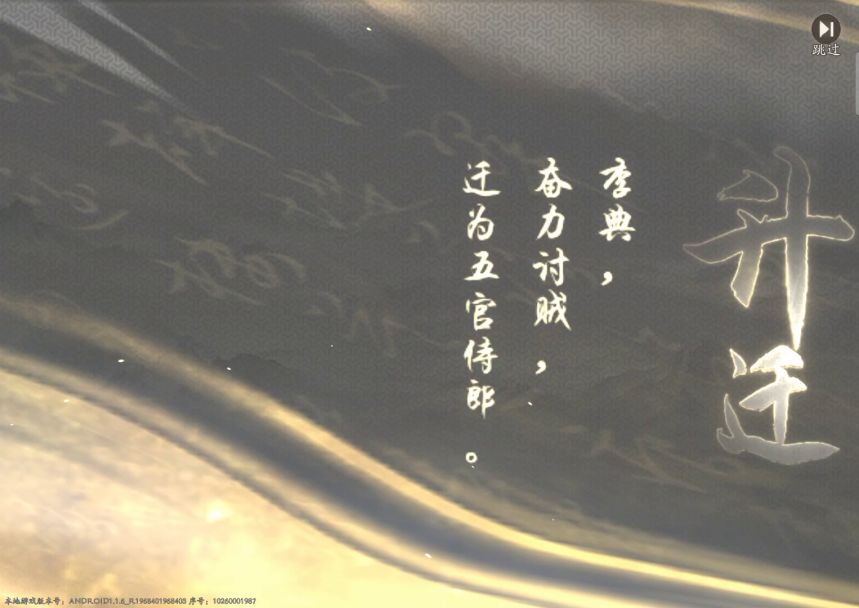 跳过
升迁
李典，
奋力讨贼，
迁为五官侍郎。
本地游戏版本号：ANDROID1.1.6_R.1968401968403 序号：10260001987